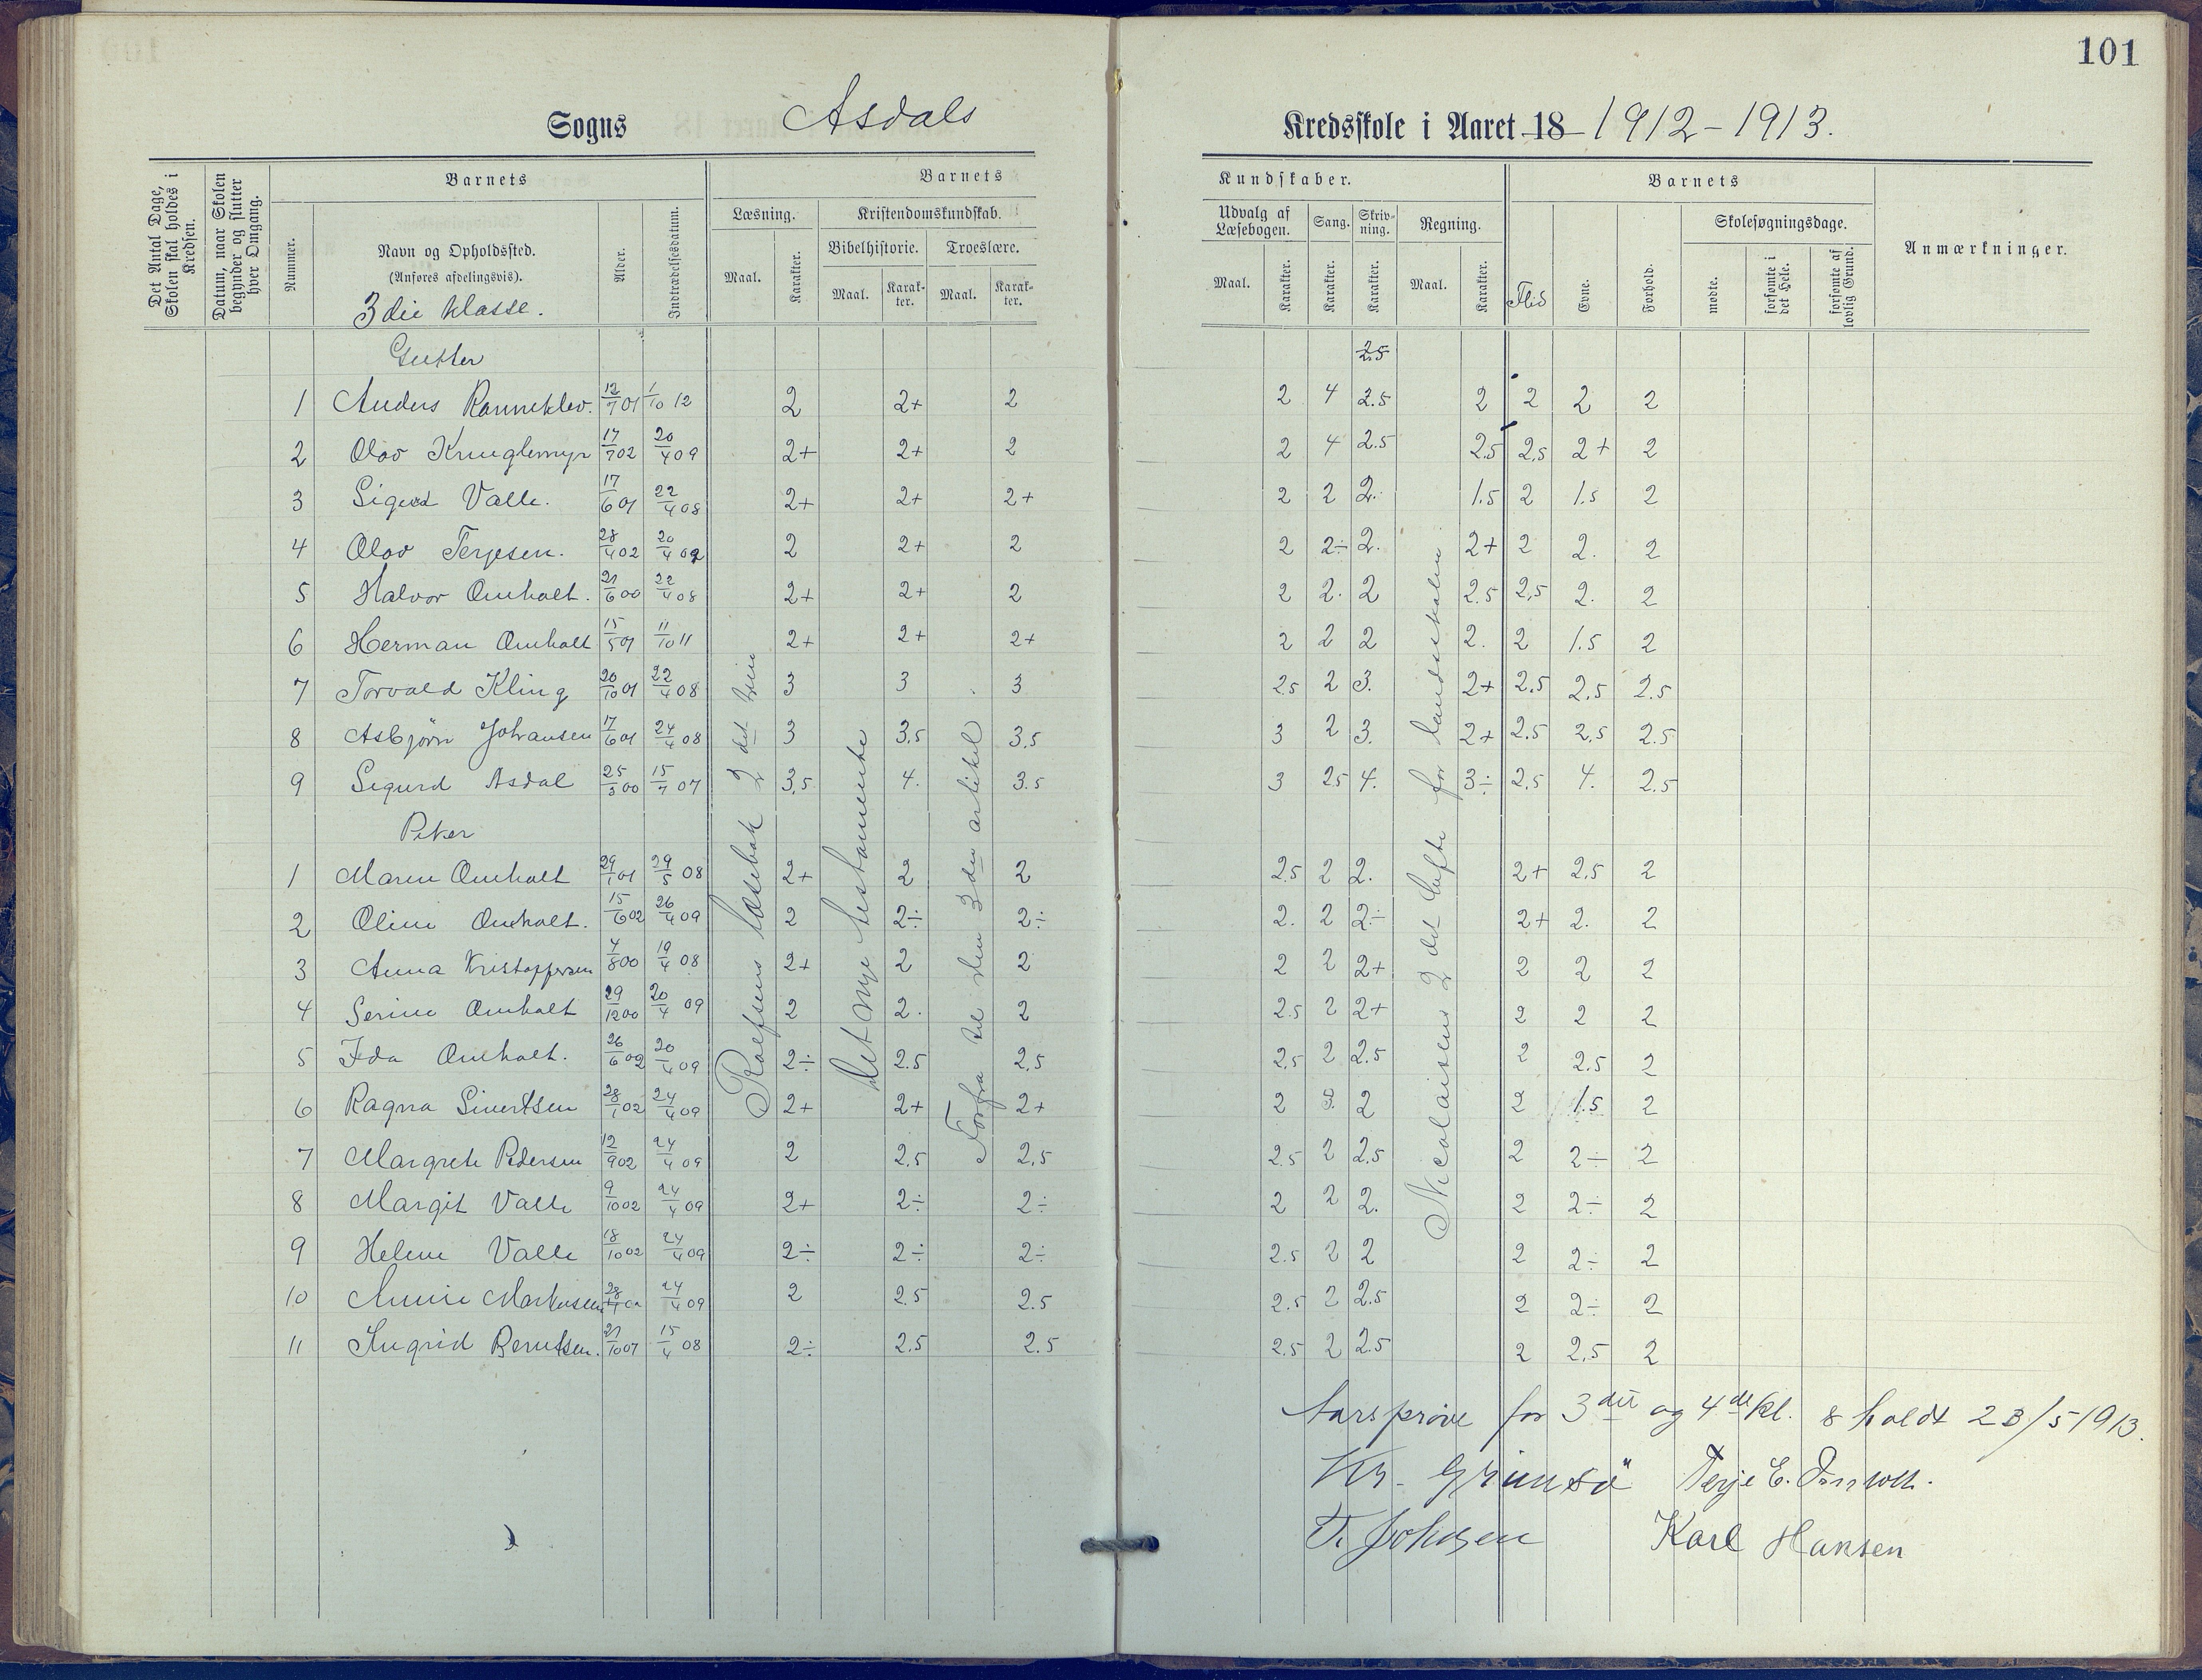 101
Sogns Asdals Kredsskole i Aaret 18 1912-1913.
Det Antal Dage, Skolen skal holdes i Kredsen.
Datum, naar Skolen begynder og slutter hver Omgang.
Barnets
Nummer.
Navn og Opholdssted.
(Anføres afdelingsvis).
3die klasse.
Alder.
Indtrædelsesdatum.
Barnets Kundskaber.
Læsning. Maal. Karakter.
Kristendomskundskab.
Bibelhistorie. Maal. Karakter.
Troeslære. Maal. Karakter.
Udvalg af Læsebogen. Maal. Karakter.
Sang. Karakter.
Skrivning. Karakter.
Regning. Maal. Karakter.
Barnets
Flid Evne. Forhold.
Skolesøgningsdage.
mødte. forsømte i det Hele. forsømte af lovlig Grund.
Anmærkninger.
Gutter
25
1 Anders Ranneklev. 12/7 01 1/10 12 2 2+ 2 2 4 2.5 2 2 2 2
2 Olav Kringlemyr 17/7 02 20/4 09 2+ 2+ 2 2 4 2.5 2.5 2,5 2+ 2
3 Sigurd Valle. 17/6 01 22/4 08 2+ 2+ 2+ 2 2 2. 1.5 2 1.5 2
4 Olav Terjesen. 28/4 02 20/4 09 2 2+ 2 2 2÷ 2. 2+ 2 2. 2
5 Halvor Omholt. 21/6 00 22/4 08 2+ 2+ 2 2 2. 2 2.5 2,5 2. 2
6 Herman Omholt 15/5 01 11/10 11 2+ 2+ 2+ 2 2 2 2. 2 1.5 2
7 Torvald Kling 20/10 01 22/4 08 3 3 3 2.5 2 3. 2+ 2.5 2,5 2.5
8 Asbjörn Johansen 17/6 01 24/4 08 3 3.5 3,5 3 2 3. 2+ 2.5 2,5 2.5
9 Sigurd Asdal 25/3 00 15/7 07 3,5 4. 3.5 3 25 4. 3÷ 2,5 4. 2.5
Piker
1 Maren Omholt 29/1 01 29/5 08 2+ 2 2 2.5 2 2. 2+ 2,5 2
2 Oline Omholt. 15/6 02 26/4 09 2 2÷ 2÷ 2. 2 2÷ 2+ 2. 2
3 Anna Kristoppersen 4/8 00 19/4 08 2+ 2 2 2 2 2+ 2 2 2
4 Serine Omholt 29/12 00 20/4 09 2 2. 2 2.5 2 2+ 2 2 2
5 Ida Omholt. 26/6 02 20/4 09 2÷ 2.5 2,5 2,5 2 2.5 2 2.5 2
6 Ragna Sivertsen 28/1 02 24/4 09 2+ 2+ 2+ 2 3. 2 2 1.5 2
7 Margrete Pedersen 12/9 02 24/4 09 2 2,5 2,5 2.5 2 2.5 2 2÷ 2
8 Margit Valle 9/10 02 24/4 09 2+ 2÷ 2÷ 2 2 2. 2 2÷ 2
9 Helene Valle 18/10 02 24/4 09 2÷ 2÷ 2÷ 2.5 2 2 2 2÷ 2
10 Annie Markussen 24/4 09 2 2.5 2.5 2.5 2 2.5 2 2÷ 2
11 Ingrid Berntsen. 21/10 01 15/4 08 2÷ 2.5 2.5 2.5 2 2.5 2 2,5 2
Rolfsens læsebok 2 det trin
Det nye testamente
Forfra til den 3 die artikel
Nicolaisens 2 det hefte for landsskolen
Aarsprøve for 3die og 4de kl. holdt 23/5 1913.
Kr. Grimsö Terje E. Omholt.
T. Johnsen Karl Hansen